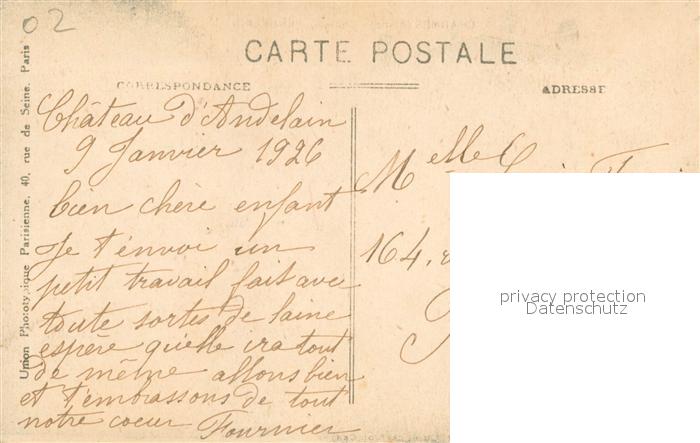 02
CARTE POSTALE
CORRESPONDANCE
ADRESSE
Union Phototypique Parisienne, 40, rue de Seine, Paris
Château d'Andelain
9 Janvier 1926
bien chère enfant
Je t'envoi un
petit travail fait avec
toute sortes de laine
espère qu'elle ira tout
de même allons bien
et t'embrassons de tout
notre coeur Fournier
Melle
164, r
privacy protection
Datenschutz